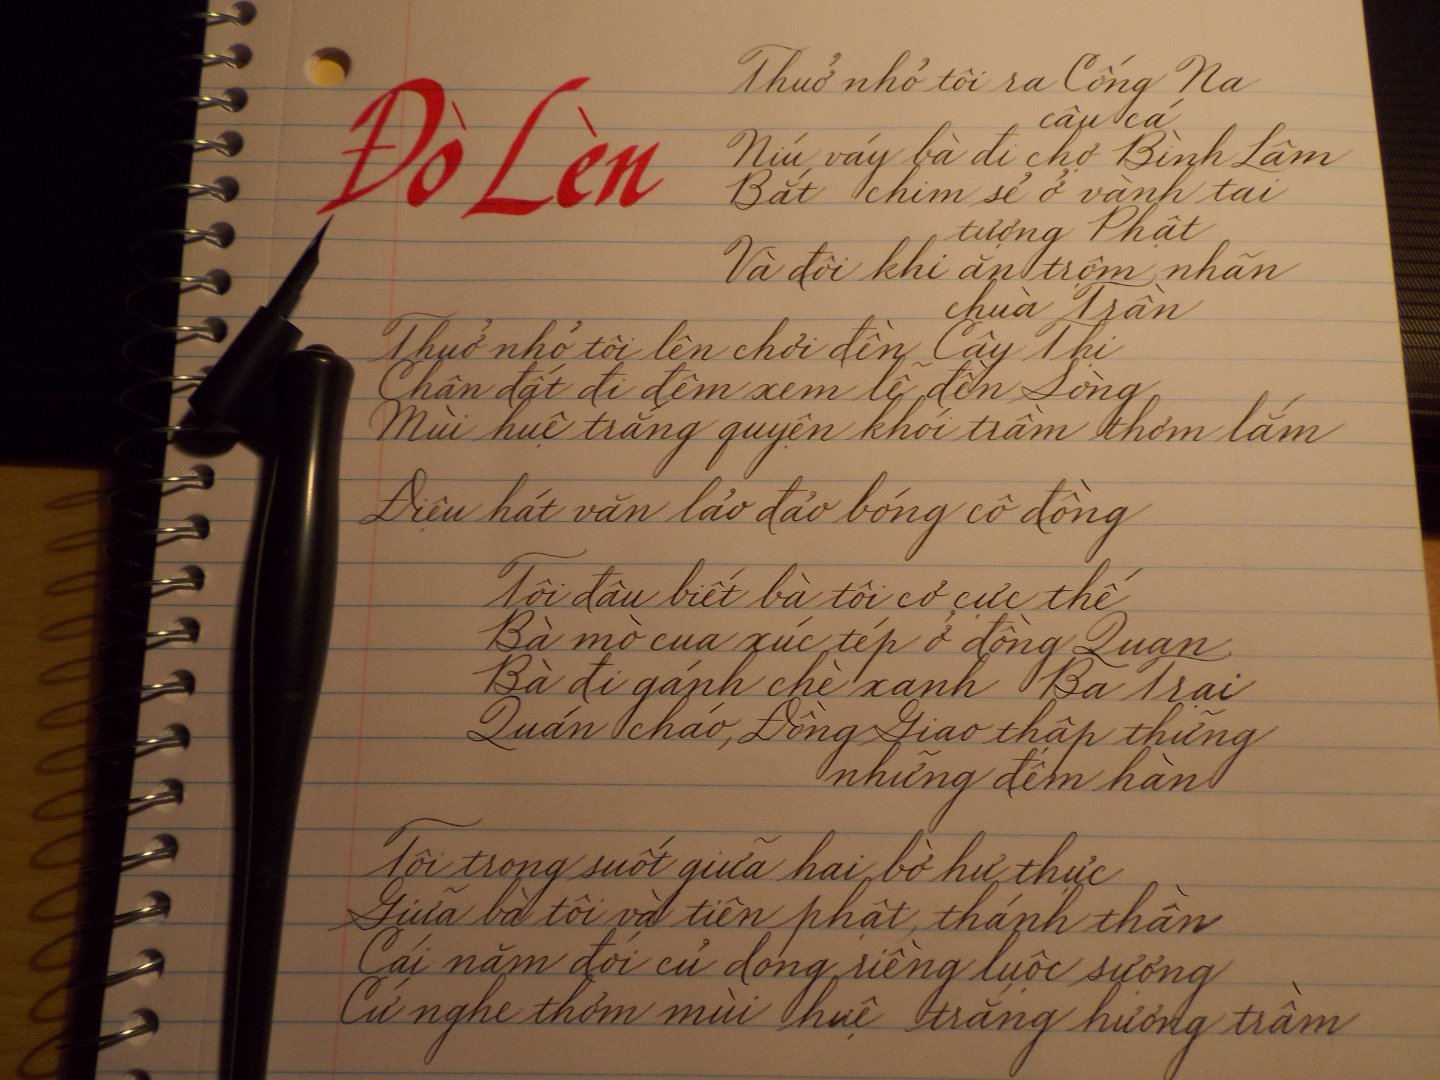 Đò Lèn
Thuở nhỏ tôi ra Cống Na
câu cá
Níu váy bà đi chợ Bình Lâm
Bắt chim sẻ ở vành tai
tượng Phật
Và đôi khi ăn trộm nhãn
chùa Trần
Thuở nhỏ tôi lên chơi đền Cây Thị
Chân đất đi đêm xem lễ đền Sòng
Mùi huệ trắng quyện khói trầm thơm lắm
Điệu hát văn lảo đảo bóng cô đồng
Tôi đâu biết bà tôi cơ cực thế
Bà mò cua xúc tép ở đồng Quan
Bà đi gánh chè xanh Ba Trại
Quán cháo, Đồng Giao thập thững
những đêm hàn
Tôi trong suốt giữa hai bờ hư thực
Giữa bà tôi và tiên phật, thánh thần
Cái năm đói củ dong riềng luộc sượng
Cứ nghe thơm mùi huệ trắng hương trầm